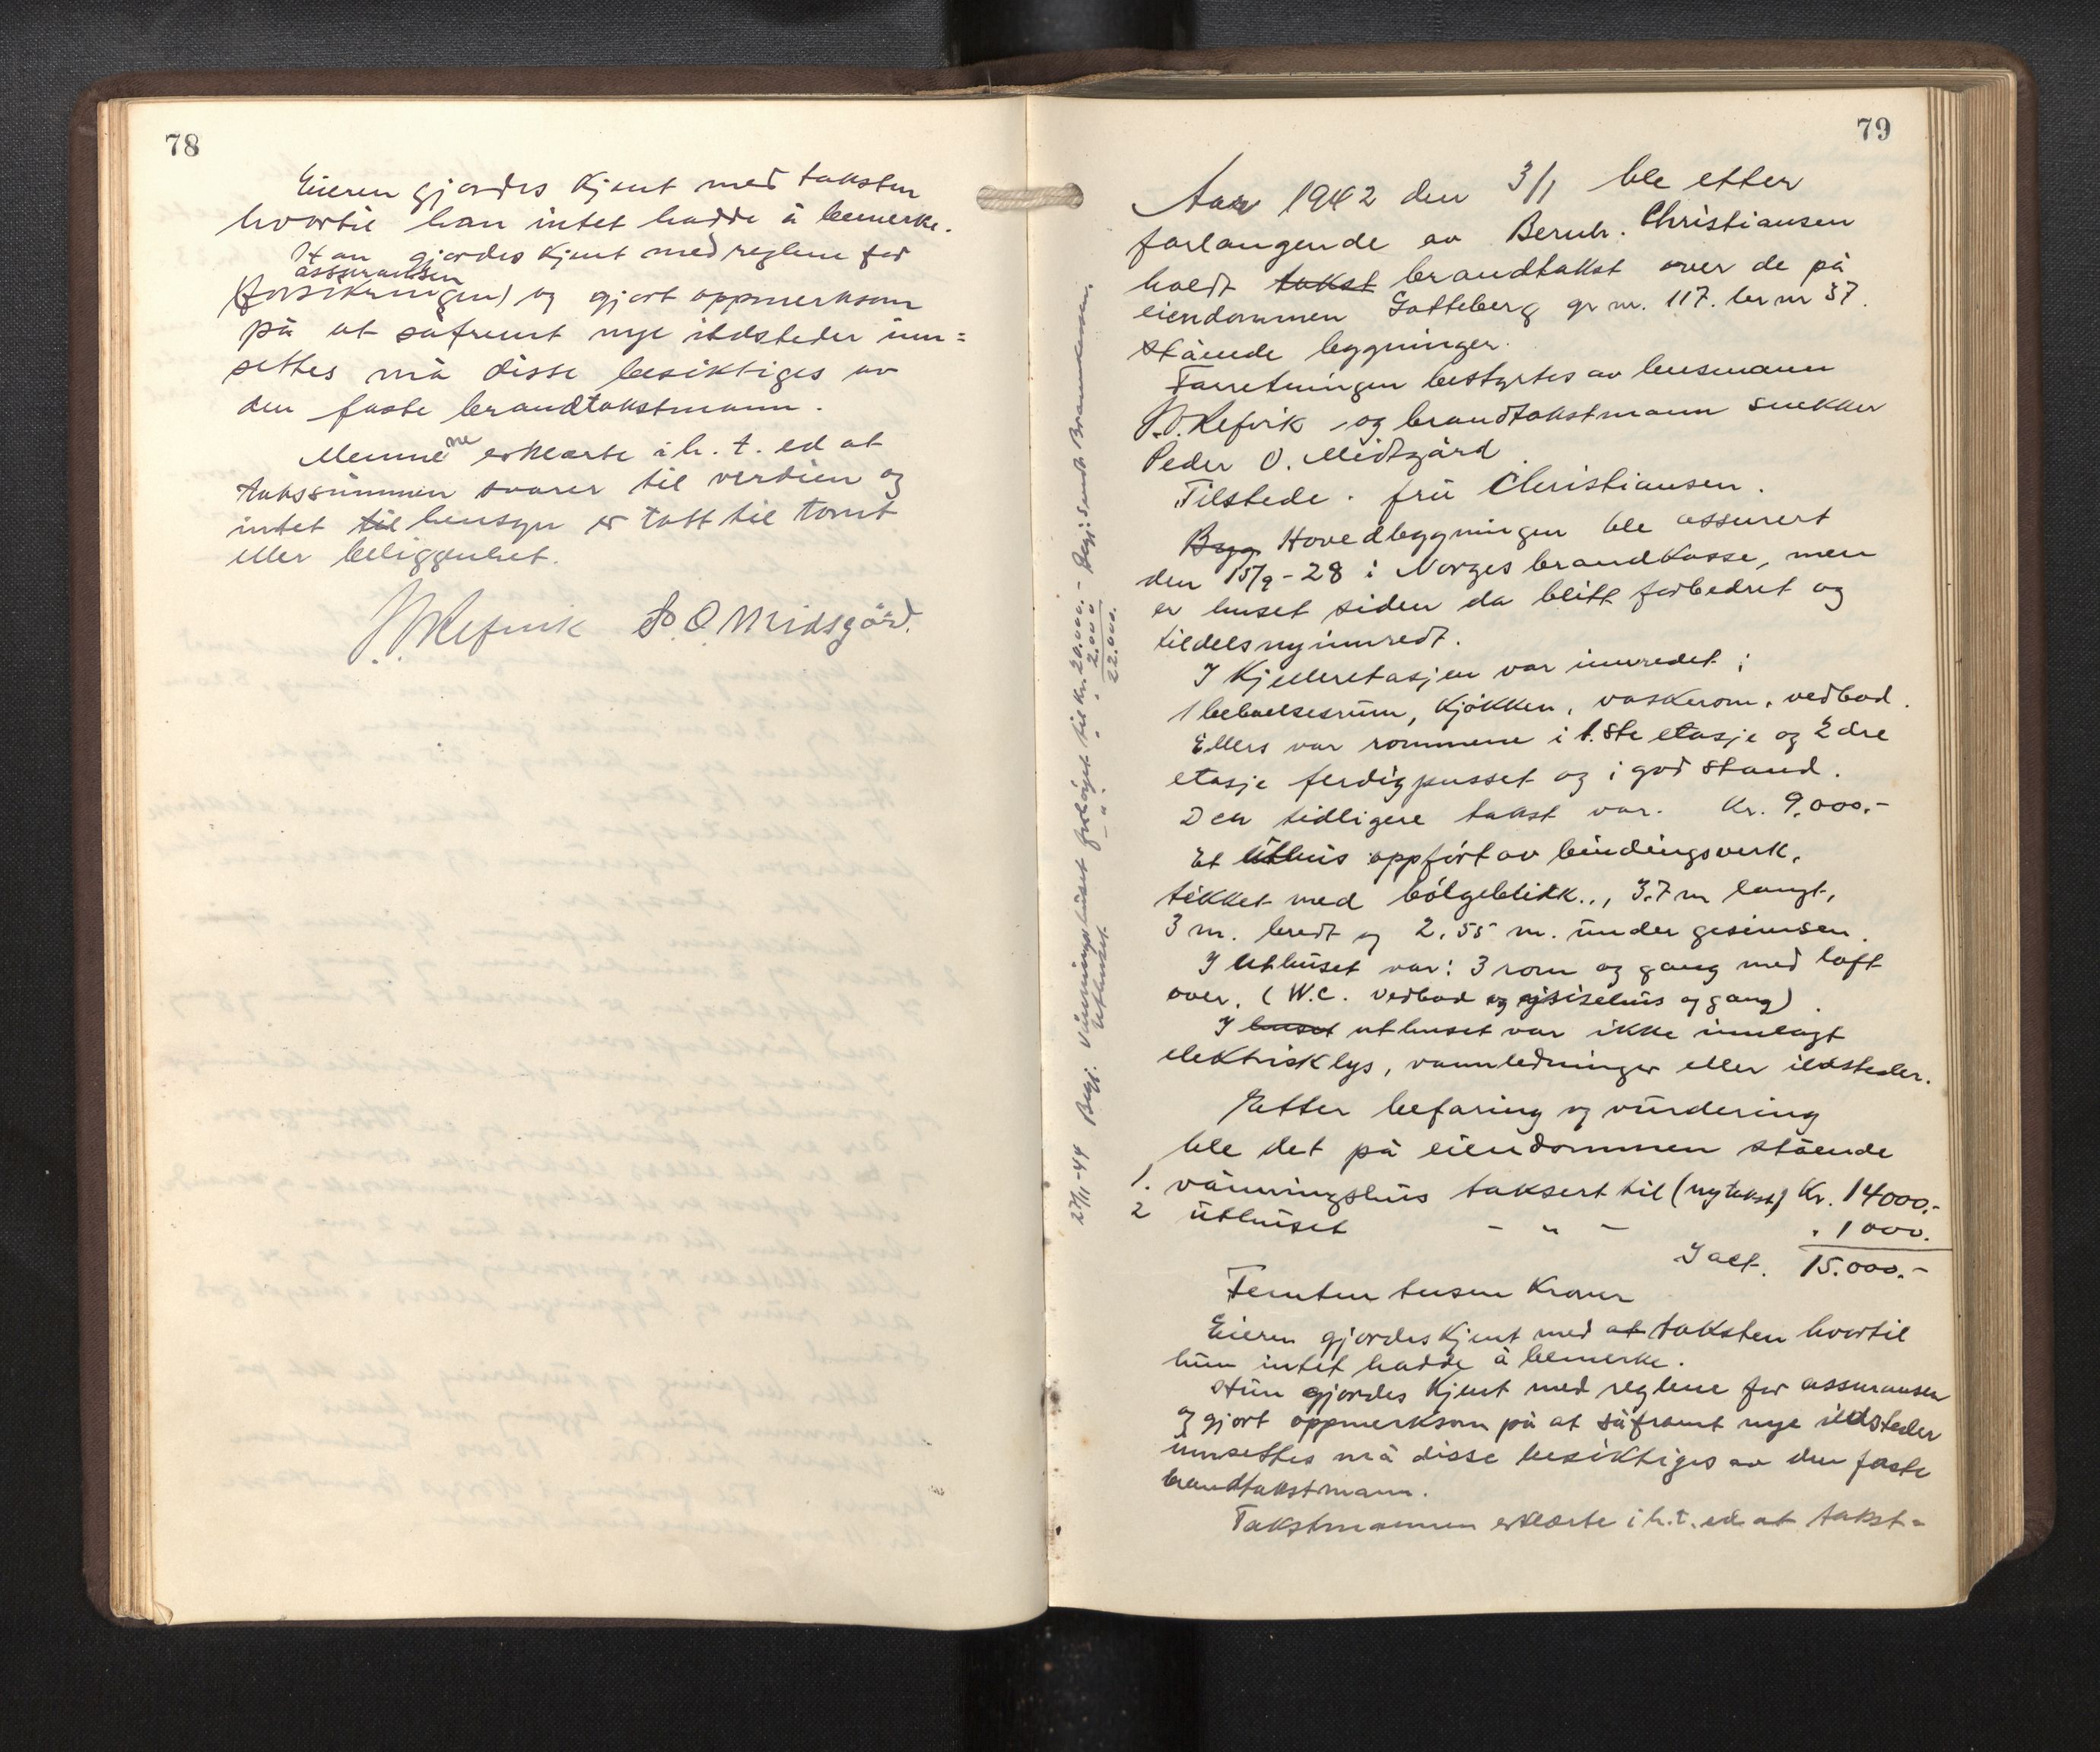 78
Eieren gjordes kjent med taksten
hvortil han intet hadde å bemerke.
Han gjordes kjent med reglene for
assuransen
(forsikringen) og gjort oppmerksom
på at såfremt nye ildsteder inn=
settes må disse besiktiges av
den faste brandtakstmann.
Mennene erklærte i h. t. ed at
takssummen svarer til verdien og
intet til hensyn er tatt til tomt
eller beliggenhet.
Refvik P O Midtgård.
79
Aar 1942 den 3/1 ble etter
forlangende av Bernh. Christiansen
holdt takst brandtakst over de på
eiendommen Gotteberg gr nr. 117. br nr 37.
stående bygninger.
Forretningen bestyrtes av lensmann
Refvik og brandtakstmann snekker
Peder O. Midtgård
Tilstede. fru Christiansen.
Byg Hovedbygningen ble assurert
den 15/9-28 i Norges brandkasse, men
er huset siden da blitt forbedret og
tildels nyinnredt.
I kjelleretasjen var innredet;
1 beboelsesrum, kjøkken, vaskerom, vedbod.
Ellers var rommene i 1.ste etasje og 2dre
etasje ferdigpusset og i god stand.
Den tidligere takst var. Kr. 9.000.-
Et uthus oppført av bindingsverk,
tekket med bølgeblikk.., 3.7 m langt,
3 m. bredt og 2,55 m. under gesimsen.
I uthuset var: 3 rom og gang med loft
over. (W.C. vedbod og og gang)
I huset uthuset var ikke innlagt
elektrisk lys, vannledninger eller ildsteder.
Etter befaring og vurdering
ble det på eiendommen stående
1. våningshus taksert til (ny takst) Kr. 14000.-
2 uthuset - " - . 1 000.
I alt. 15.000.-
Femten tusen kroner
Eieren gjordes kjent med at taksten hvortil
hun intet hadde å bemerke.
Hun gjordes kjent med reglene for assuransen
og gjort oppmerksom på at såframt nye ildsteder
innsettes må disse besiktiges av den faste
brandtakstmann.
Takstmannen erklærte i h.t. ed at takst=
27/11-44 Begj. Våningshuset forhøiet til kr. 20.000.- Begj. sendt Brannkassen.
Uthuset - " - " 2.000
22.000.